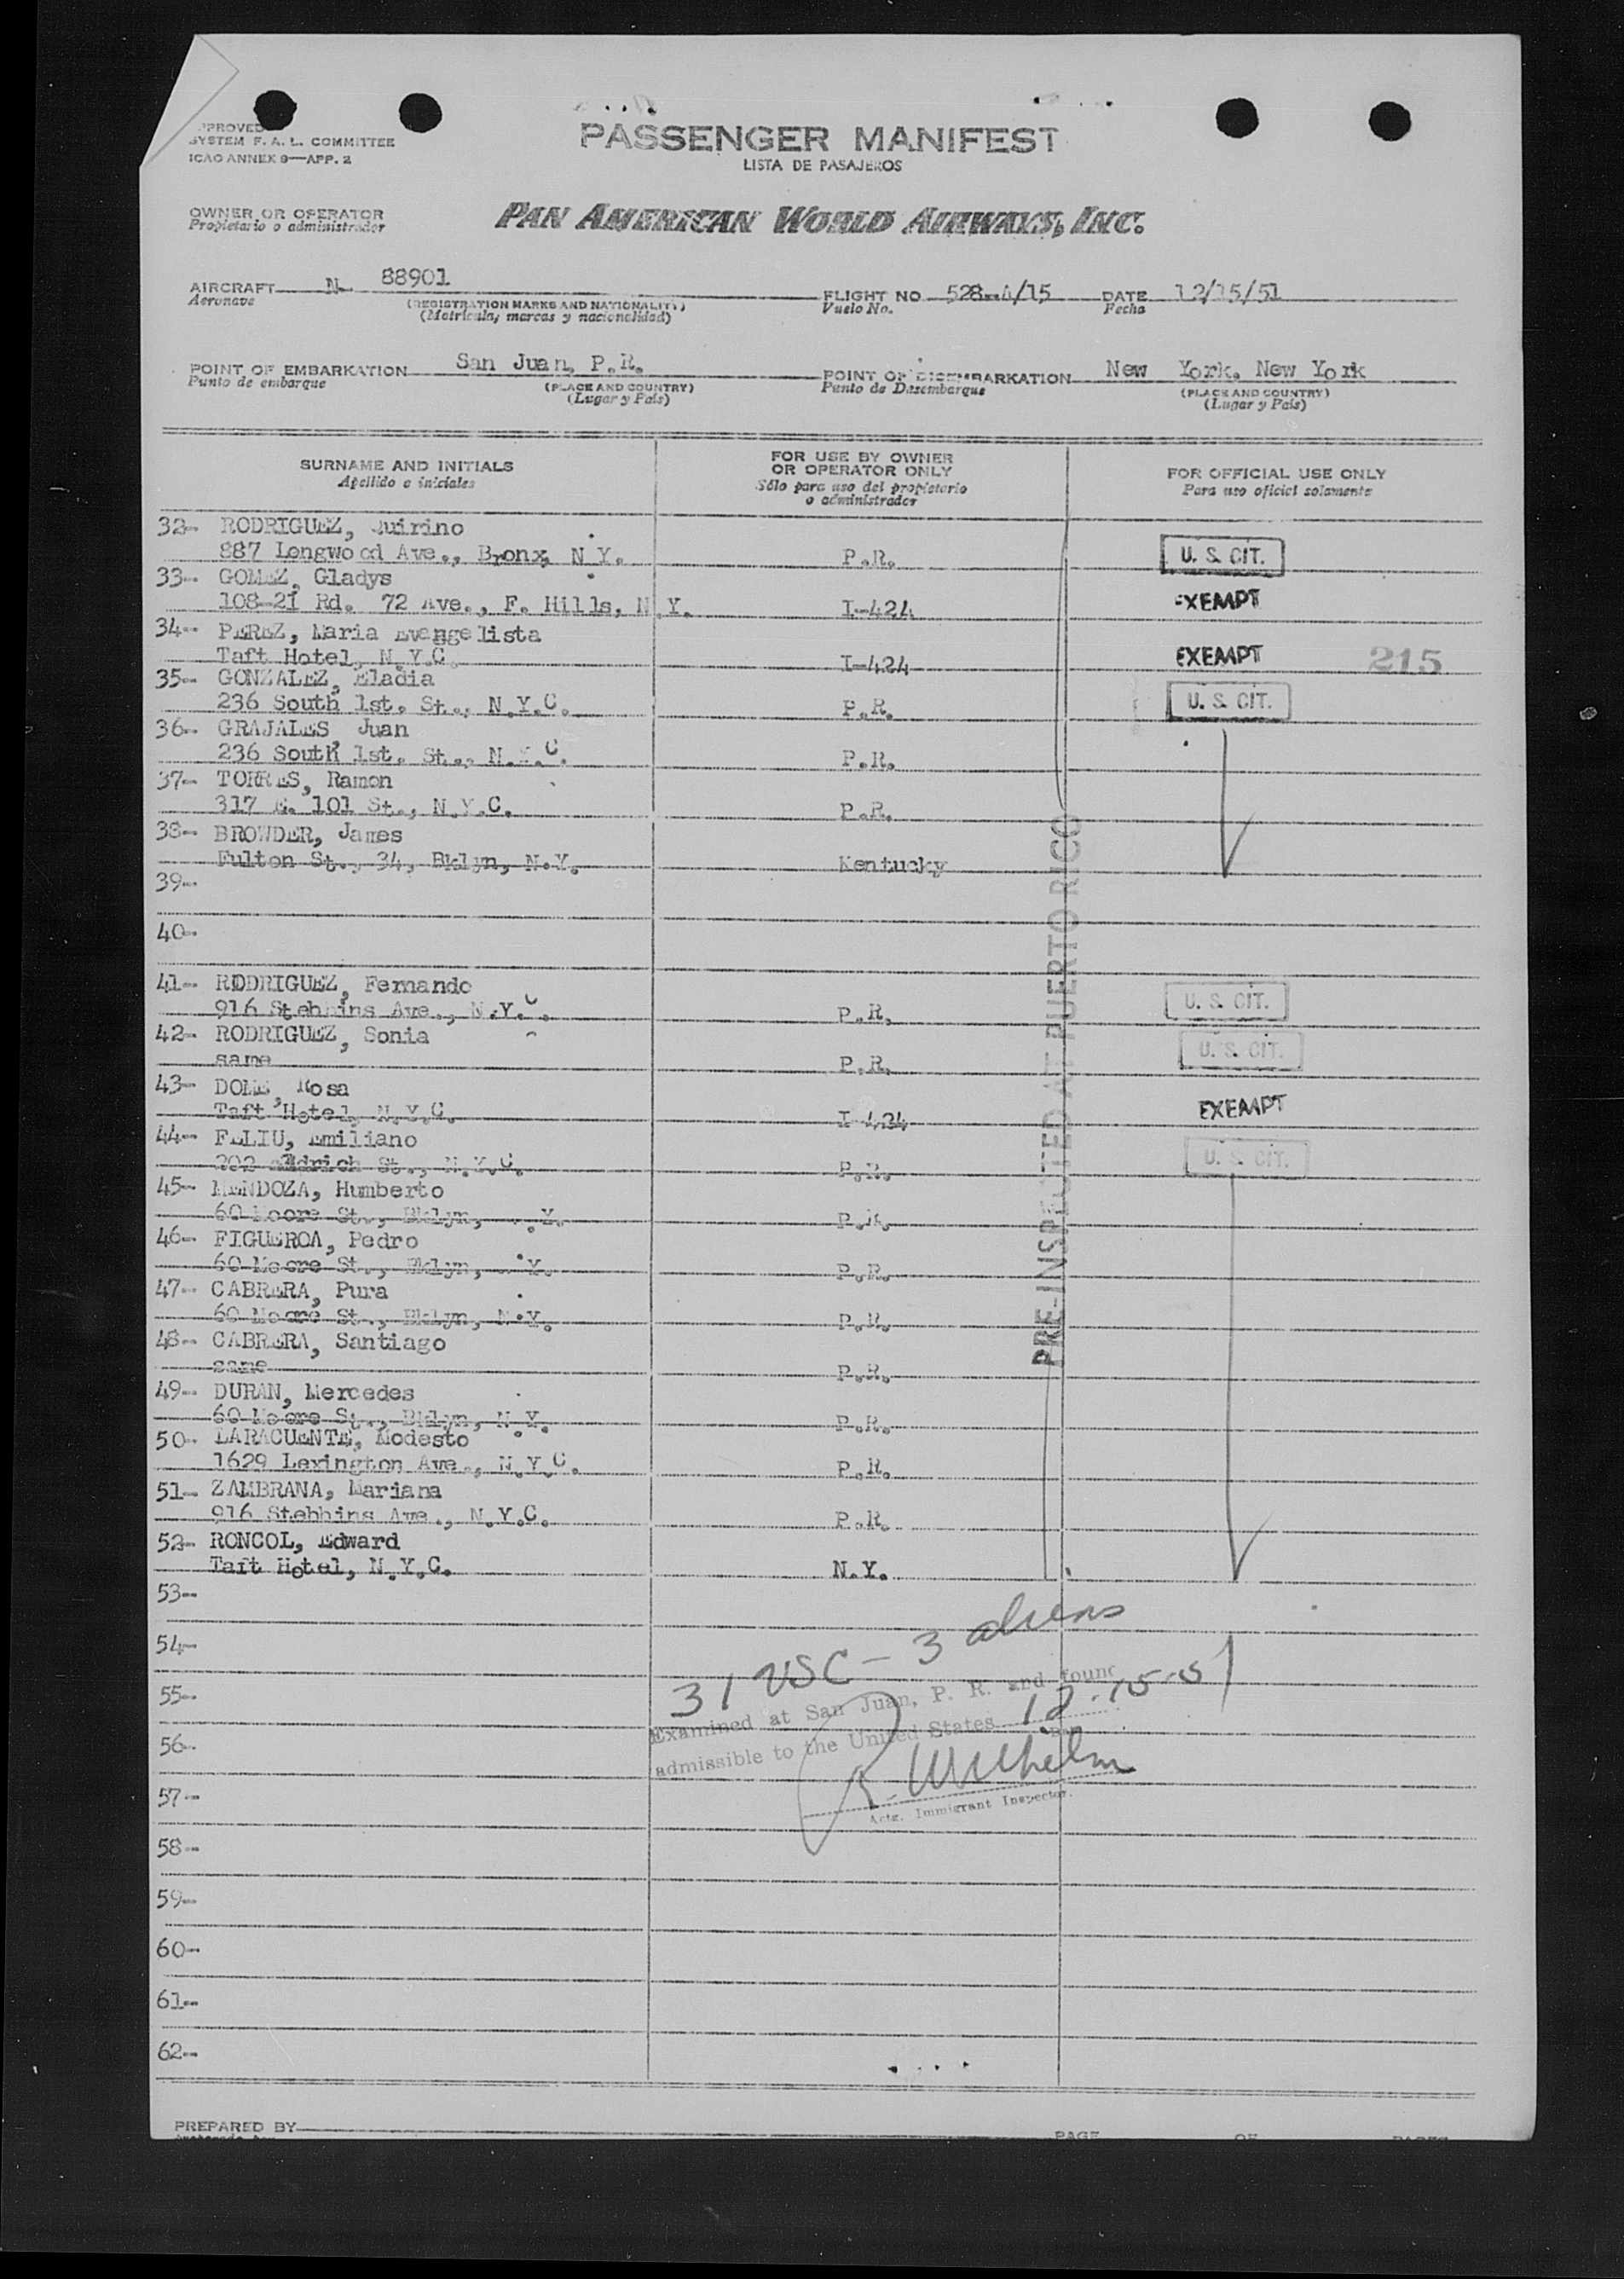 APPROVED
SYSTEM F. A. L. COMMITTEE
ICAO ANNEX 9—APP. 2
PASSENGER MANIFEST
LISTA DE PASAJEROS
OWNER OR OPERATOR
Propietario o administrador
PAN AMERICAN WORLD AIRWAYS, INC.
AIRCRAFT N- 88901
Aeronave
(REGISTRATION MARKS AND NATIONALITY)
(Matrícula, marcas y nacionalidad)
FLIGHT NO. 528-A/15
Vuelo No.
DATE 12/15/51
Fecha
POINT OF EMBARKATION San Juan, P.R.
Punto de embarque
(PLACE AND COUNTRY)
(Lugar y País)
POINT OF DISEMBARKATION New York, New York
Punto de Desembarque
(PLACE AND COUNTRY)
(Lugar y País)
SURNAME AND INITIALS
Apellido e iniciales
FOR USE BY OWNER
OR OPERATOR ONLY
Sólo para uso del propietario
o administrador
FOR OFFICIAL USE ONLY
Para uso oficial solamente
32- RODRIGUEZ, Quirino
887 Longwood Ave., Bronx, N.Y. P.R. U. S. CIT.
33- GOMEZ, Gladys
108-21 Rd. 72 Ave., F. Hills, N.Y. I-424 EXEMPT
34- PEREZ, Maria Evangelista
Taft Hotel, N.Y.C. I-424 EXEMPT 215
35- GONZALEZ, Eladia
236 South 1st. St., N.Y.C. P.R. U. S. CIT.
36- GRAJALES, Juan
236 South 1st. St., N.Y.C. P.R.
37- TORRES, Ramon
317 E. 101 St., N.Y.C. P.R.
38- BROWDER, James
Fulton St., 34, Bklyn, N.Y. Kentucky
39-
40-
41- RODRIGUEZ, Fernando
916 Stebbins Ave., N.Y.C. P.R. U. S. CIT.
42- RODRIGUEZ, Sonia
same P.R. U. S. CIT.
43- DOME, Rosa
Taft Hotel, N.Y.C. I-424 EXEMPT
44- FELIU, Emiliano
202 St., N.Y.C. P.R. U. S. CIT.
45- MENDOZA, Humberto
60 Moore St., Bklyn, N.Y. P.R.
46- FIGUEROA, Pedro
60 Moore St., Bklyn, N.Y. P.R.
47- CABRERA, Pura
60 Moore St., Bklyn, N.Y. P.R.
48- CABRERA, Santiago
same P.R.
49- DURAN, Mercedes
60 Moore St., Bklyn, N.Y. P.R.
50- LARACUENTE, Modesto
1629 Lexington Ave., N.Y.C. P.R.
51- ZAMBRANA, Mariana
916 Stebbins Ave., N.Y.C. P.R.
52- RONCOL, Edward
Taft Hotel, N.Y.C. N.Y.
PRE-INSPECTED AT PUERTO RICO
53-
54-
55-
56-
57-
58-
59-
60-
61-
62-
31 USC - 3 aliens
Examined at San Juan, P. R. and found
admissible to the United States 12-15-51
R. Wilhelm
Actg. Immigrant Inspector.
PREPARED BY
PAGE OF PAGES